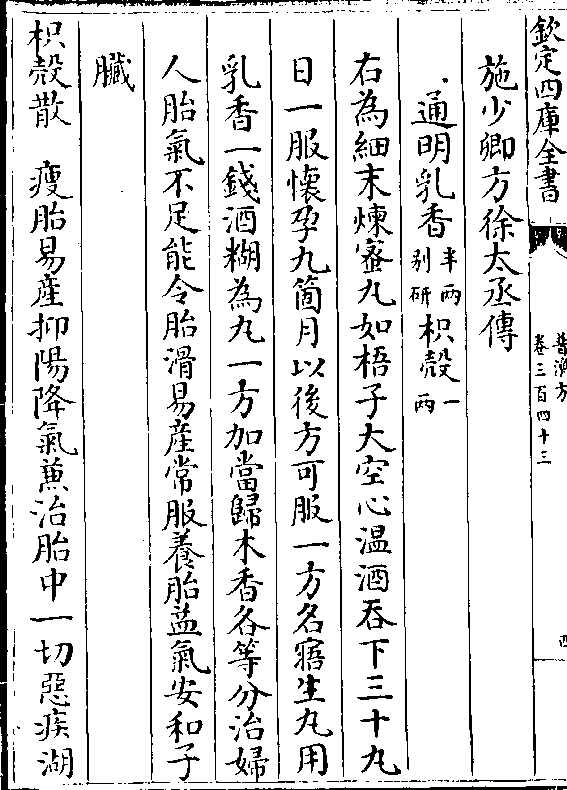 欽定四庫全書
普濟方
卷三百四十三
四
施少卿方徐太丞傳
通明乳香半兩别研枳殼一兩
右為細末煉蜜丸如梧子大空心温酒吞下三十九
日一服懷孕九箇月以後方可服一方名寤生丸用
乳香一錢酒糊為丸一方加當歸木香各等分治婦
人胎氣不足能令胎滑易產常服養胎益氣安和子
臟
枳殼散　瘦胎易產抑陽降氣兼治胎中一切惡疾湖